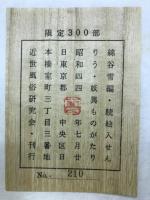 限定300部
綿谷雪編・続絵入せん
りう・妖異ものがたり
昭和四四年七月廿
日東京都中央区日
本橋室町三丁目三番地
近世風俗研究会・刊行
No. 210